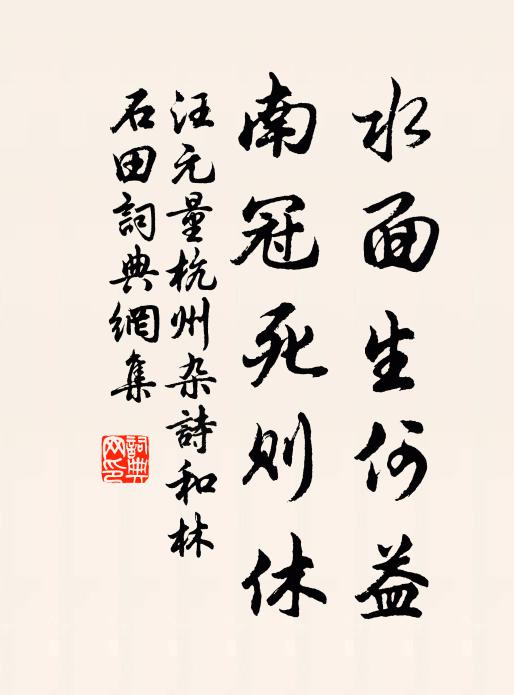 水面生何益
南冠死则休
汪元量杭州杂詩和林
石田詞典網集
詞典
网印